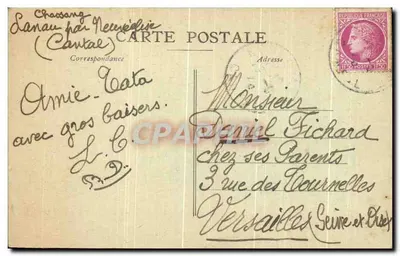 Chassang
Lanau par Neuvéglise
(Cantal)
CARTE POSTALE
Correspondance
Adresse
Amie - Tata
avec gros baisers.
L. C
Monsieur
Daniel Fichard
chez ses Parents
3 rue des Tournelles
Versailles Seine et Oise
CPARAMA